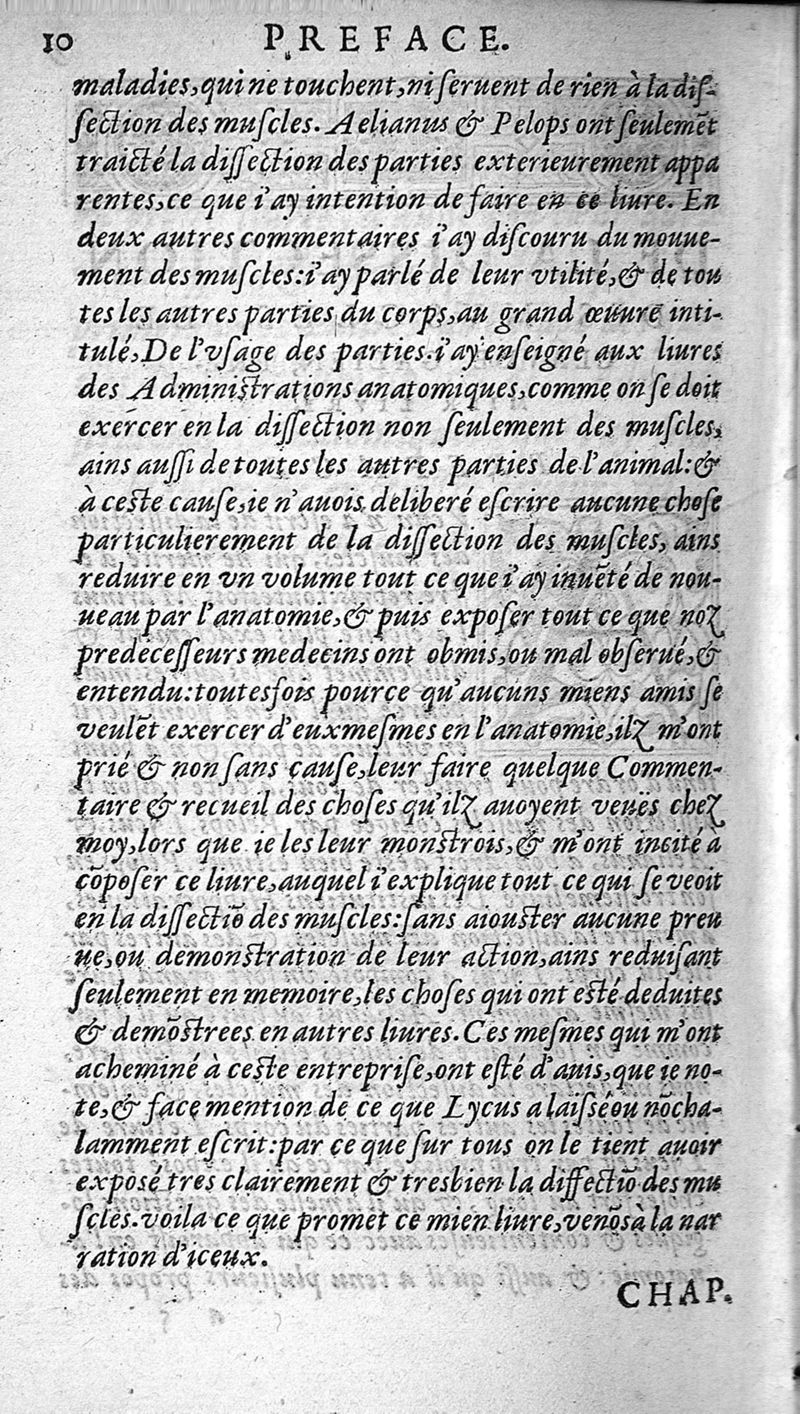 10 PREFACE.
maladies, qui ne touchent, ni seruent de rien à la dis-
section des muscles. Aelianus & Pelops ont seulemẽt
traicté la dissection des parties exterieurement appa
rentes, ce que i'ay intention de faire en ce liure. En
deux autres commentaires i'ay discouru du mouue-
ment des muscles: i'ay parlé de leur vtilité, & de tou
tes les autres parties du corps, au grand œuure inti-
tulé, De l'vsage des parties. i'ay enseigné aux liures
des Administrations anatomiques, comme on se doit
exercer en la dissection non seulement des muscles,
ains aussi de toutes les autres parties de l'animal: &
à ceste cause, ie n'auois deliberé escrire aucune chose
particulierement de la dissection des muscles, ains
reduire en vn volume tout ce que i'ay inuẽté de nou-
ueau par l'anatomie, & puis exposer tout ce que noz
predecesseurs medecins ont obmis, ou mal obserué, &
entendu: toutesfois pource qu'aucuns miens amis se
veulẽt exercer d'euxmesmes en l'anatomie, ilz m'ont
prié & non sans cause, leur faire quelque Commen-
taire & recueil des choses qu'ilz auoyent veuës chez
moy, lors que ie les leur monstrois, & m'ont incité à
cõposer ce liure, auquel i'explique tout ce qui se veoit
en la dissectiõ des muscles: sans aiouster aucune preu
ue, ou demonstration de leur action, ains reduisant
seulement en memoire, les choses qui ont esté deduites
& demõstrees en autres liures. Ces mesmes qui m'ont
acheminé à ceste entreprise, ont esté d'auis, que ie no-
te, & face mention de ce que Lycus a laissé ou nõcha-
lamment escrit: par ce que sur tous on le tient auoir
exposé tres clairement & tresbien la dissectiõ des mu
scles. voila ce que promet ce mien liure, venõs à la nar
ration d'iceux.
CHAP.